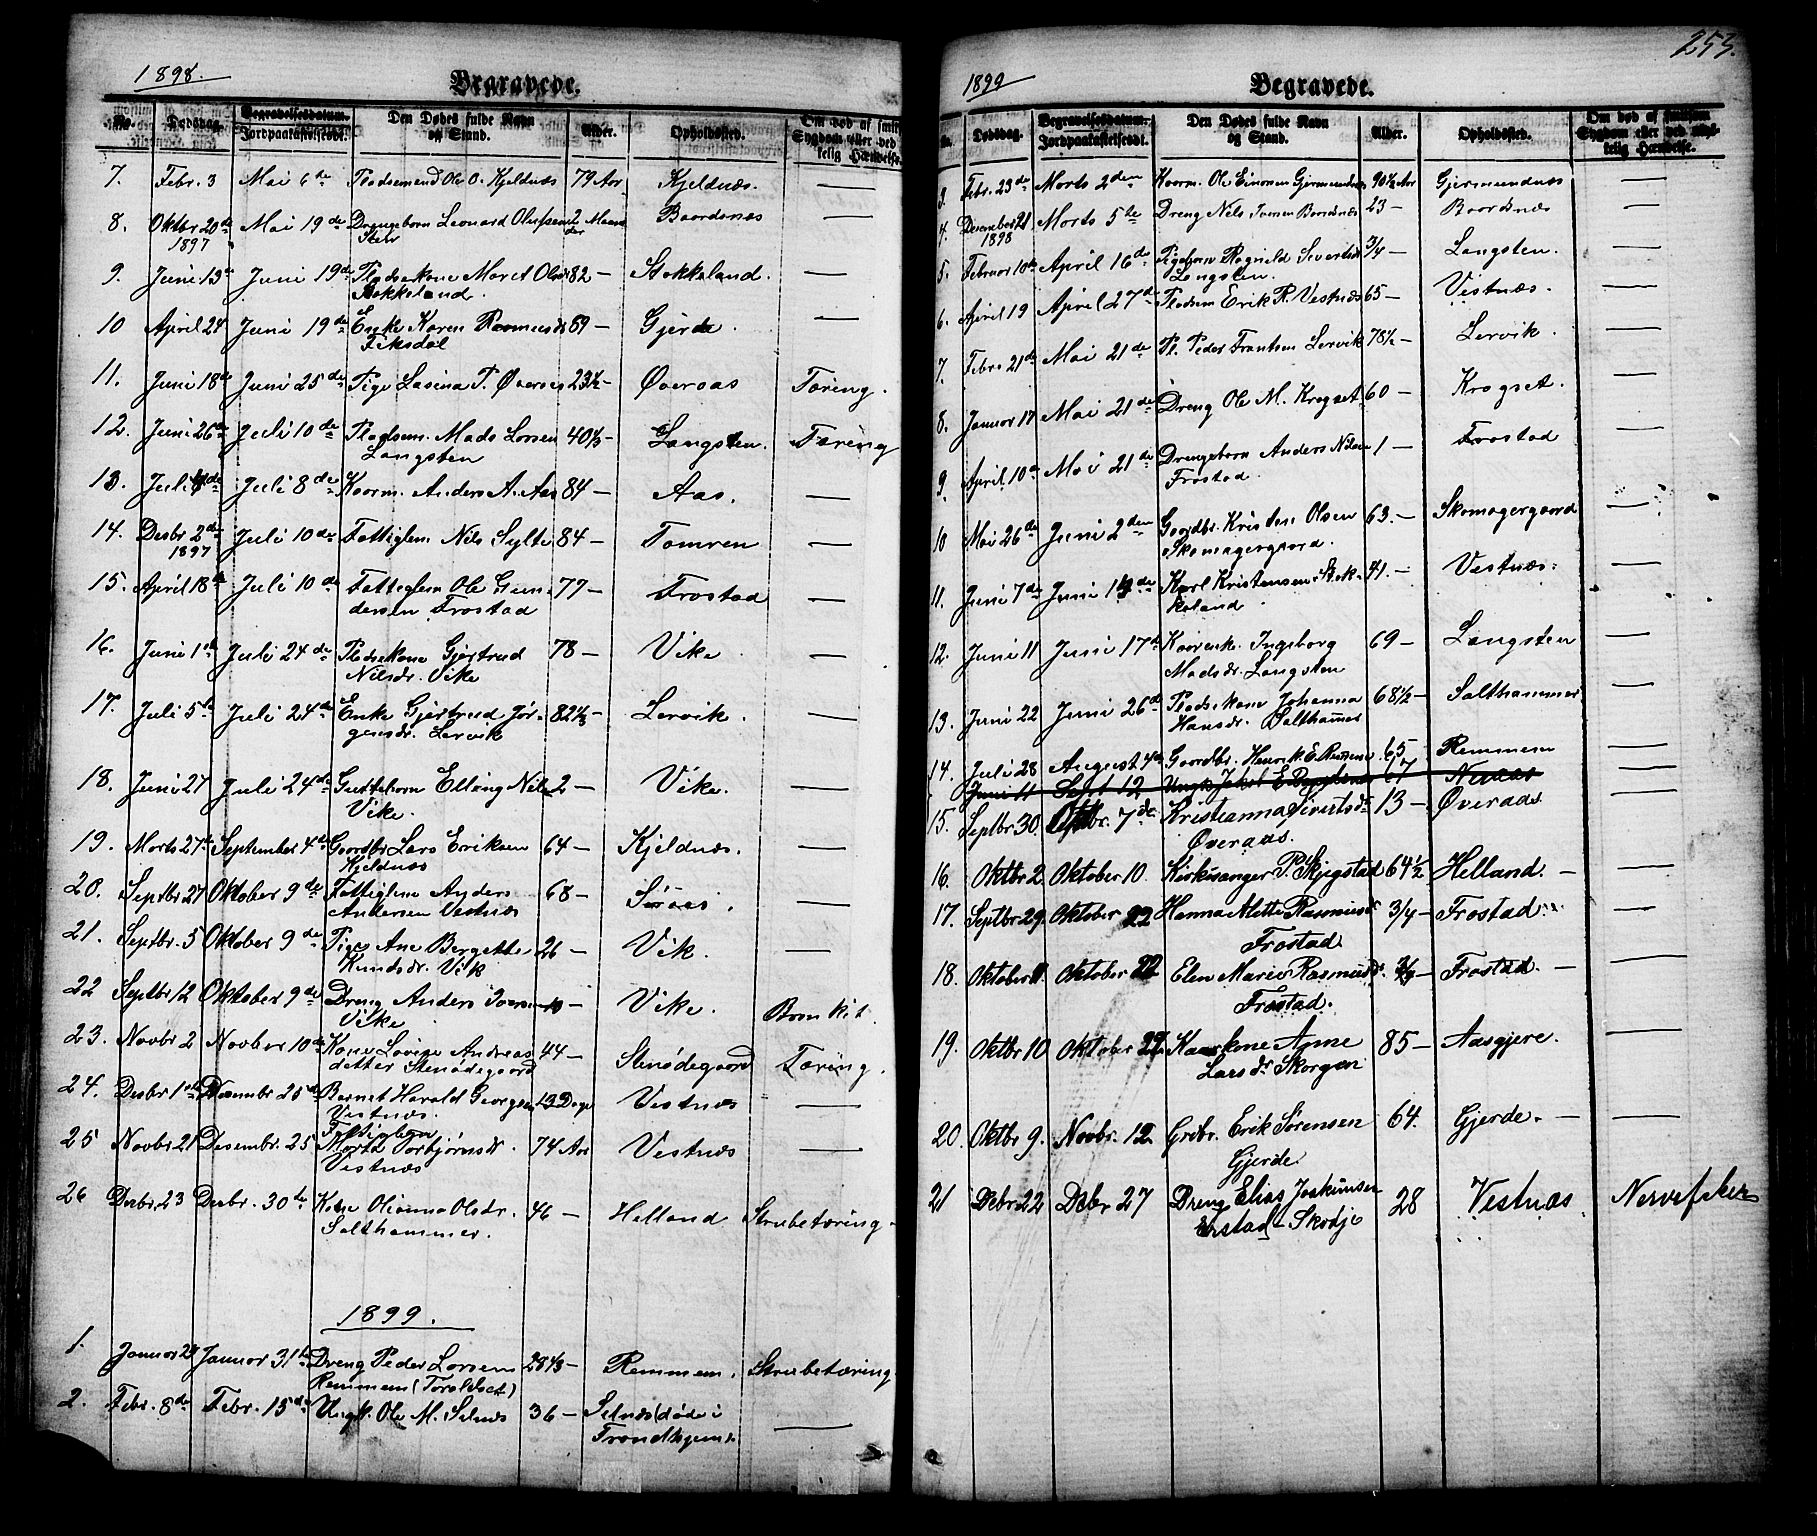 1898.
Begravede.
No.
Dødsdag.
Begravelsesdatum.
Jordpaakastelsesdt.
Den Dødes fulde Navn
og Stand.
Alder.
Opholdssted.
Om død af smit
Sygdom eller ved
kelig Hændelse.
7. Febr. 3 Mai 6te Pladsemand Ole O. Kjeldnæs 79 Aar Kjeldnæs. —
8. Oktbr 20de Mai 19de Drengebarn Leonard Olufsen 2 Maane
1897 Sten der Baardsnæs —
9. Juni 13de Juni 19de Pladsekone Maret Olsdr 82 — Stokkeland. —
Stokkeland.
10 April 24 Juni 19de Enke Karen Rasmusdr 89 — Gjerde. —
Fiksdal
11. Juni 18de Juni 25de Pige Lasina P. Øveraas 23½ — Øveraas Tæring.
12. Juni 26de Juli 10de Pladsem. Mads Larsen 40½ — Langsten. Tæring
Langsten
13. Juli Juli 8de Kaarm. Anders A. Aas 84 — Aas. —
14. Desbr 2de Juli 10de Fattiglem Nils Sylte 84 — Tomren —
1897
15. April 18de Juli 10de Fattiglem Ole Gun- 77 — Frostad —
dersen Frostad
16. Juni 1ste Juli 24de Pladsekone Gjertrud 78 — Vike —
Nilsdr. Vike
17. Juli 5te Juli 24de Enke Gjertrud Jør- 82½ — Lervik. —
gensdr. Lervik
18. Juni 27 Juli 24de Guttebarn Elling Nils 2 — Vike. —
Vike.
19. Marts 27de September 4de Gaardbr Lars Eriksen 64 — Kjeldnæs. —
Kjeldnæs
20. Septbr 27 Oktober 9de Fattiglem Anders 68 — Søraas. —
Andersen Vestnæs
21. Septbr. 5 Oktober 9de Pige Ane Bergette 26 — Vik. —
Knudsdr. Vik
22 Septbr 12 Oktober 9de Dreng Anders Iversen 10 — Vike. Bronkit.
Vike
23. Novbr 2 Novber 10de Kone Lovise Andreas 44 — Stenødegaard Tæring.
datter Stenødegaard
24. Desbr 1ste Desembr 25de Bernt Harald Georgsen 13 Dage Vestnæs —
Vestnæs.
25 Novbr 21 Desembr. 25 Fattiglem
Marta Torbjørnsdr. 74 Aar Vestnæs —
Vestnæs
26 Desbr. 23 Desbr. 30te Kone Olianna Olsdr. 46 — Helland Strubetæring —
Salthammer.
1899.
1. Januar 21 Januar 31te Dreng Peder Larsen 28⅓ — Remmem. Strubetæring
Remmem (Toraldset)
2. Febr. 8de Febr. 15de Ungk. Ole M. Selnæs 36 — Selnæs (døde i
Trondhjem). —
253.
1899
Begravede.
No.
Dødsdag.
Begravelsesdatum.
Jordpaakastelsesdt.
Den Dødes fulde Navn
og Stand.
Alder.
Opholdssted.
Om død af smitsom
Sygdom eller ved ulyk-
kelig Hændelse.
3. Febr. 23de Marts 2den Kaarm. Ole Einarsen Gjermundnæs 90½ Aar Gjermundnæs —
4. Desember 21 Marts 5te Dreng Nils Iversen Baardsnæs 23 — Baardsnæs —
1898
5. Februar 10de April 16de Pigebarn Ragnild Sivertsdr 3/4 — Langsten. —
Langsten.
6. April 19 April 27de Pladsm Erik R. Vestnæs 65 — Vestnæs. —
7. Febr. 21de Mai 21de Pl. Peder Frantsen Lervik 78½ — Lervik. —
8. Januar 17 Mai 21de Dreng Ole M. Krogset 60 — Krogset. —
9. April 10de Mai 21de Drengebarn Anders Nilsen 1 — Frostad —
Frostad.
10 Mai 26de Juni 2den Gaardbr. Kristen Olsen 63. — Skomagergaard —
Skomagergaard.
11. Juni 7de Juni 14de Karl Kristensen Stok- 41. — Vestnæs. —
keland.
12. Juni 11 Juni 17de Kaarenke. Ingeborg 69 — Langsten —
Madsdr. Langsten
13. Juni 22 Juni 26de Pladsekone Johanna 68½ — Salthammer —
Hansdr. Salthammer
14. Juli 28 August 4de Gaardbr. Henrik E. Remmem 65 Remmem —
Juni 11 Sept 12 Ungk Jakob E 67 Neraas
15. Septbr 30 Oktbr. 7de Kristianna Sivertsdr 13 — Øveraas. —
Øveraas.
16. Oktbr 2 Oktober 10. Kirkesanger P. Skjegstad 64½ Helland. —
17. Septbr 29. Oktober 22 Hanna Mette Rasmusdr 3/4 — Frostad. —
Frostad
18. Oktober 11. Oktober 22 Elen Marie Rasmusdr. 3/4 — Frostad. —
Frostad.
19. Oktbr 10 Oktober 22 Kaarkone Anne 85 — Aasgjere. —
Larsdr Skorgen
20. Oktbr 9. Novbr. 12. Grdbr. Erik Sørensen 64. Gjerde. — —
Gjerde
21 Debr 22 Debr 27 Dreng Elias Joakimsen 28 Vestnæs Nervefeber
Erstad — Skodje